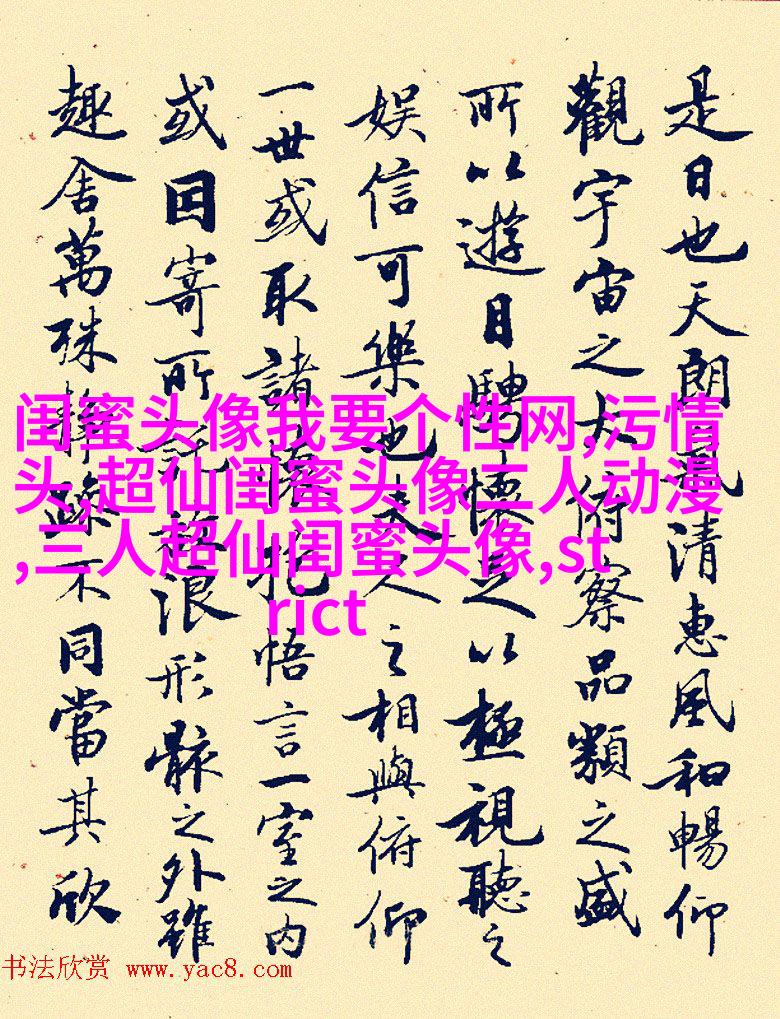 是日也天朗氣清惠風和暢仰
觀宇宙之大俯察品類之盛
所以遊目騁懷足以極視聽之
娛信可樂也夫人之相與俯仰
一世或取諸懷抱悟言一室之内
或因寄所託放浪形骸之外雖
趣舍萬殊靜躁不同當其欣
闺蜜头像我要个性网,污情
头,超仙闺蜜头像二人动漫
,三人超仙闺蜜头像,st
rict
书法欣赏 www.yac8.com